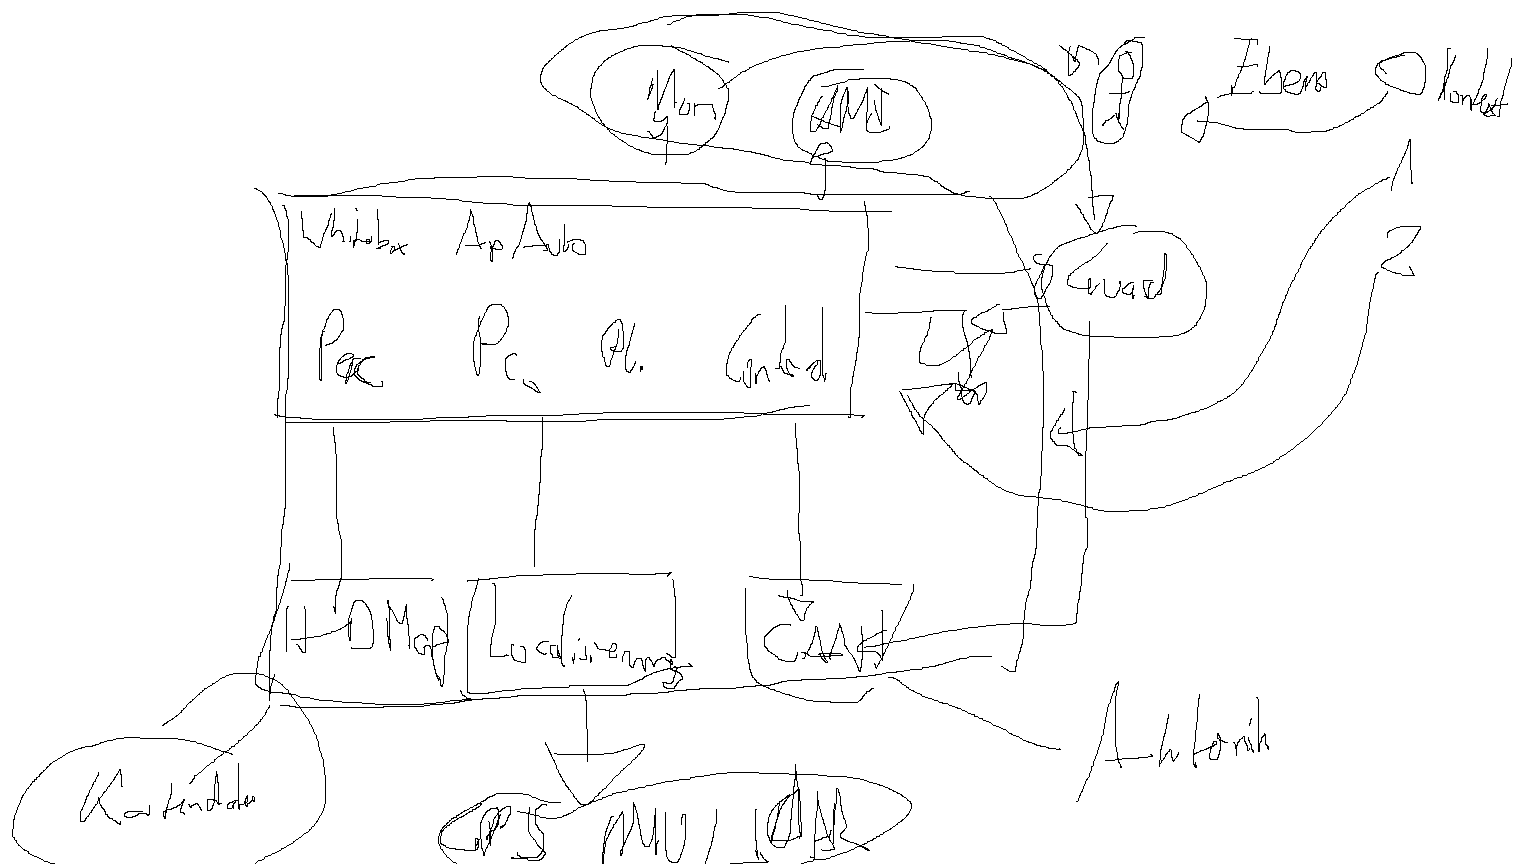 Mon
HMI
Ebene
Kontext
1
2
Whitebox ApAuto
Guard
Perc Pl. Control
HDMap
Localisierung
CAN
Kartendaten
Aktorik
GPS IMU / LIDAR